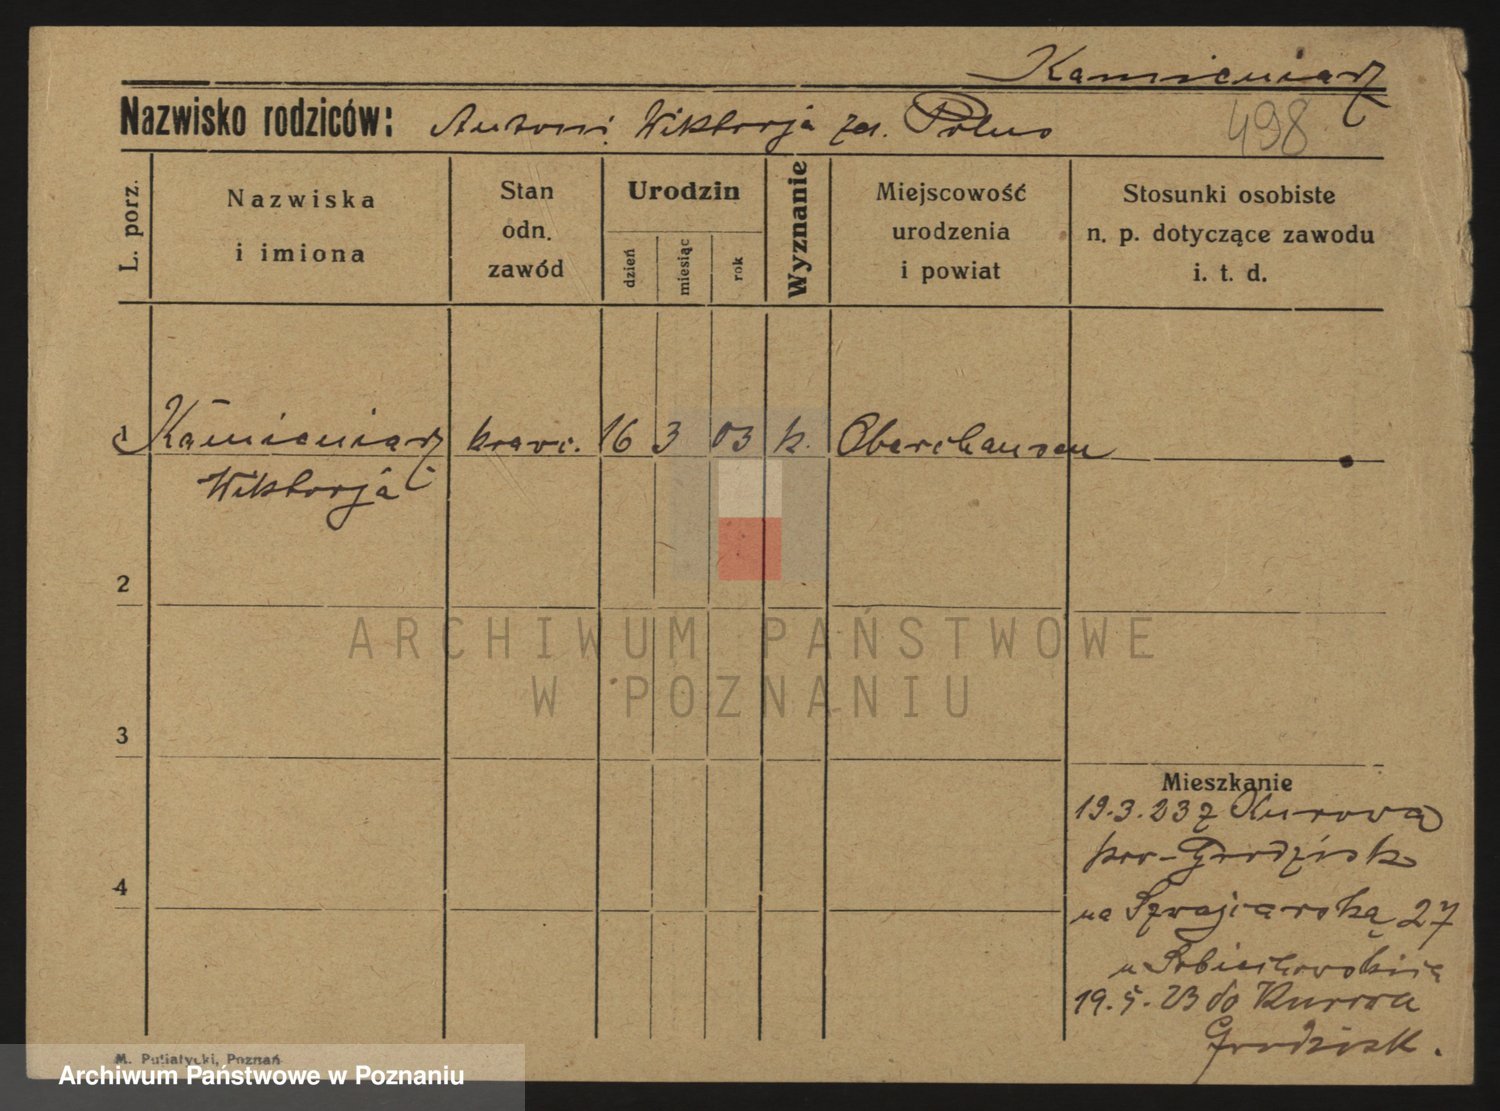 Kamieniarz
Nazwisko rodziców: Antoni Wiktorja zd. Polus
498
L. porz.
Nazwiska
i imiona
Stan
odn.
zawód
Urodzin
dzień
miesiąc
rok
Wyznanie
Miejscowość
urodzenia
i powiat
Stosunki osobiste
n. p. dotyczące zawodu
i. t. d.
1 Kamieniarz krawc. 16 3 03 k. Oberchausen
Wiktorja
2
ARCHIWUM PAŃSTWOWE
W POZNANIU
3
Mieszkanie
19.3.23 z Kurowa
pow-Grodzisk
4
na Szwajcarską 27
u
19.5.23 do Kurowa
Grodzisk.
M. Putiatycki, Poznań
Archiwum Państwowe w Poznaniu